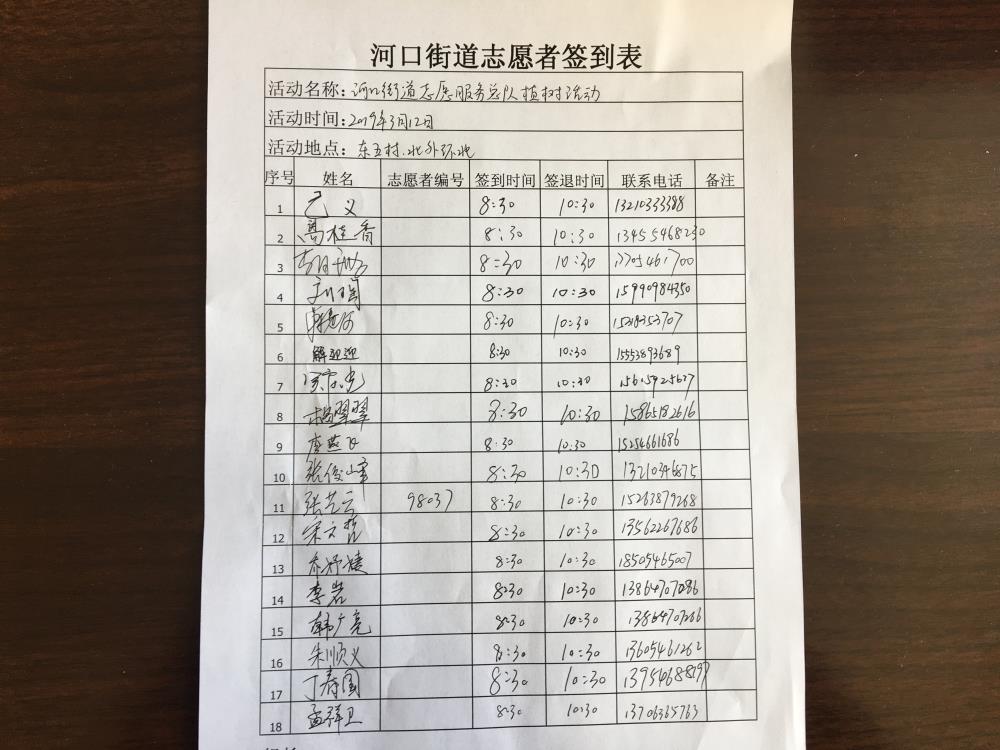 河口街道志愿者签到表
活动名称：河口街道志愿服务总队植树活动
活动时间：2019年3月12日
活动地点：东五村、北外环北
序号 姓名 志愿者编号 签到时间 签退时间 联系电话 备注
1 义 8:30 10:30 13210333388
2 高桂香 8:30 10:30 13455468230
3 8:30 10:30
4 8:30 10:30 15990984350
5 8:30 10:30
6 解迎迎 8:30 10:30 15553893689
7 8:30 10:30
8 杨翠翠 8:30 10:30 15865182616
9 唐燕飞 8:30 10:30 15254661686
10 张俊峰 8:30 10:30 13210346875
11 张艺云 98037 8:30 10:30 15263879268
12 宋文哲 8:30 10:30 13562267686
13 8:30 10:30 18505465007
14 李岩 8:30 10:30 13864707086
15 韩广亮 8:30 10:30
16 朱顺义 8:30 10:30 13605461262
17 丁寿国 8:30 10:30 13954688197
18 孟祥卫 8:30 10:30 13706365763